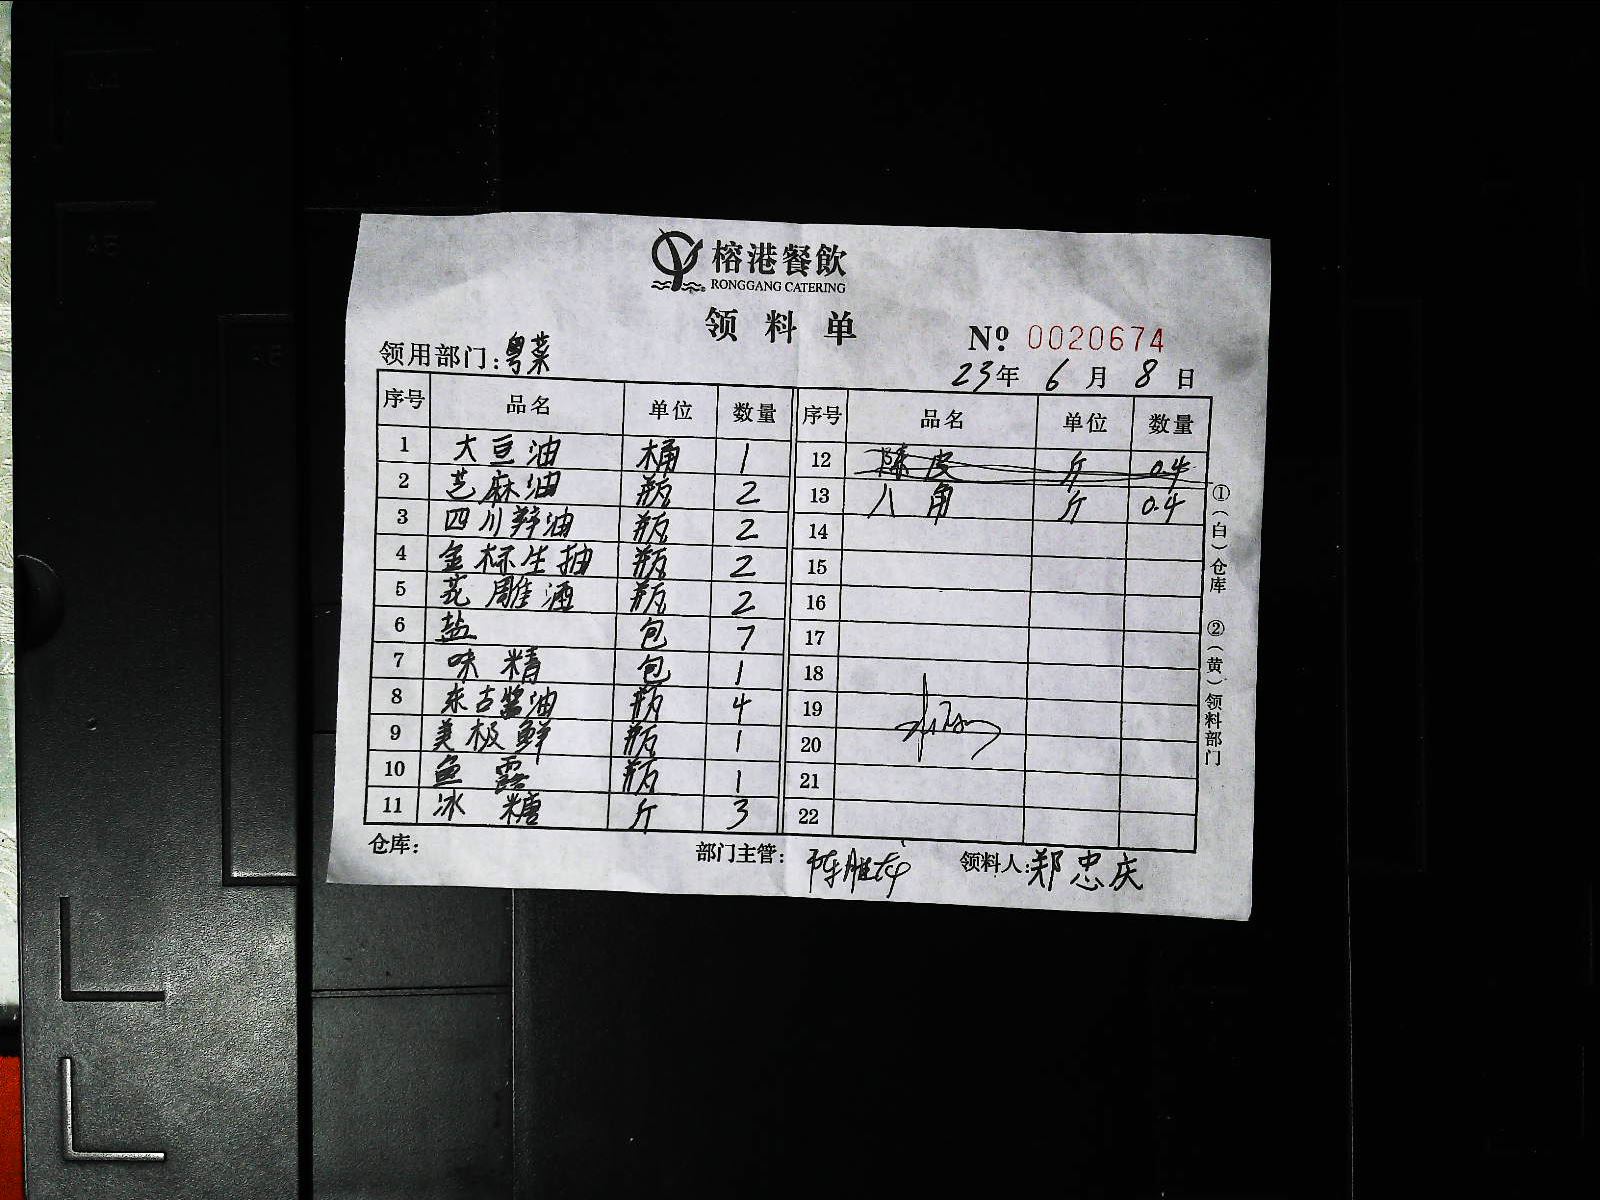 榕港餐飲
RONGGANG CATERING
领料单
No 0020674
领用部门:粤菜
23年6月8日
序号 品名 单位 数量 序号 品名 单位 数量
1 大豆油 桶 1 12 陈皮 斤 0.4
2 芝麻油 瓶 2 13 八角 斤 0.4
3 四川辣油 瓶 2 14
4 金标生抽 瓶 2 15
5 花雕酒 瓶 2 16
6 盐 包 7 17
7 味精 包 1 18
8 东古酱油 瓶 4 19
9 美极鲜 瓶 1 20
10 鱼露 瓶 1 21
11 冰糖 斤 3 22
仓库: 部门主管: 领料人:郑忠庆
①(白)仓库 ②(黄)领料部门